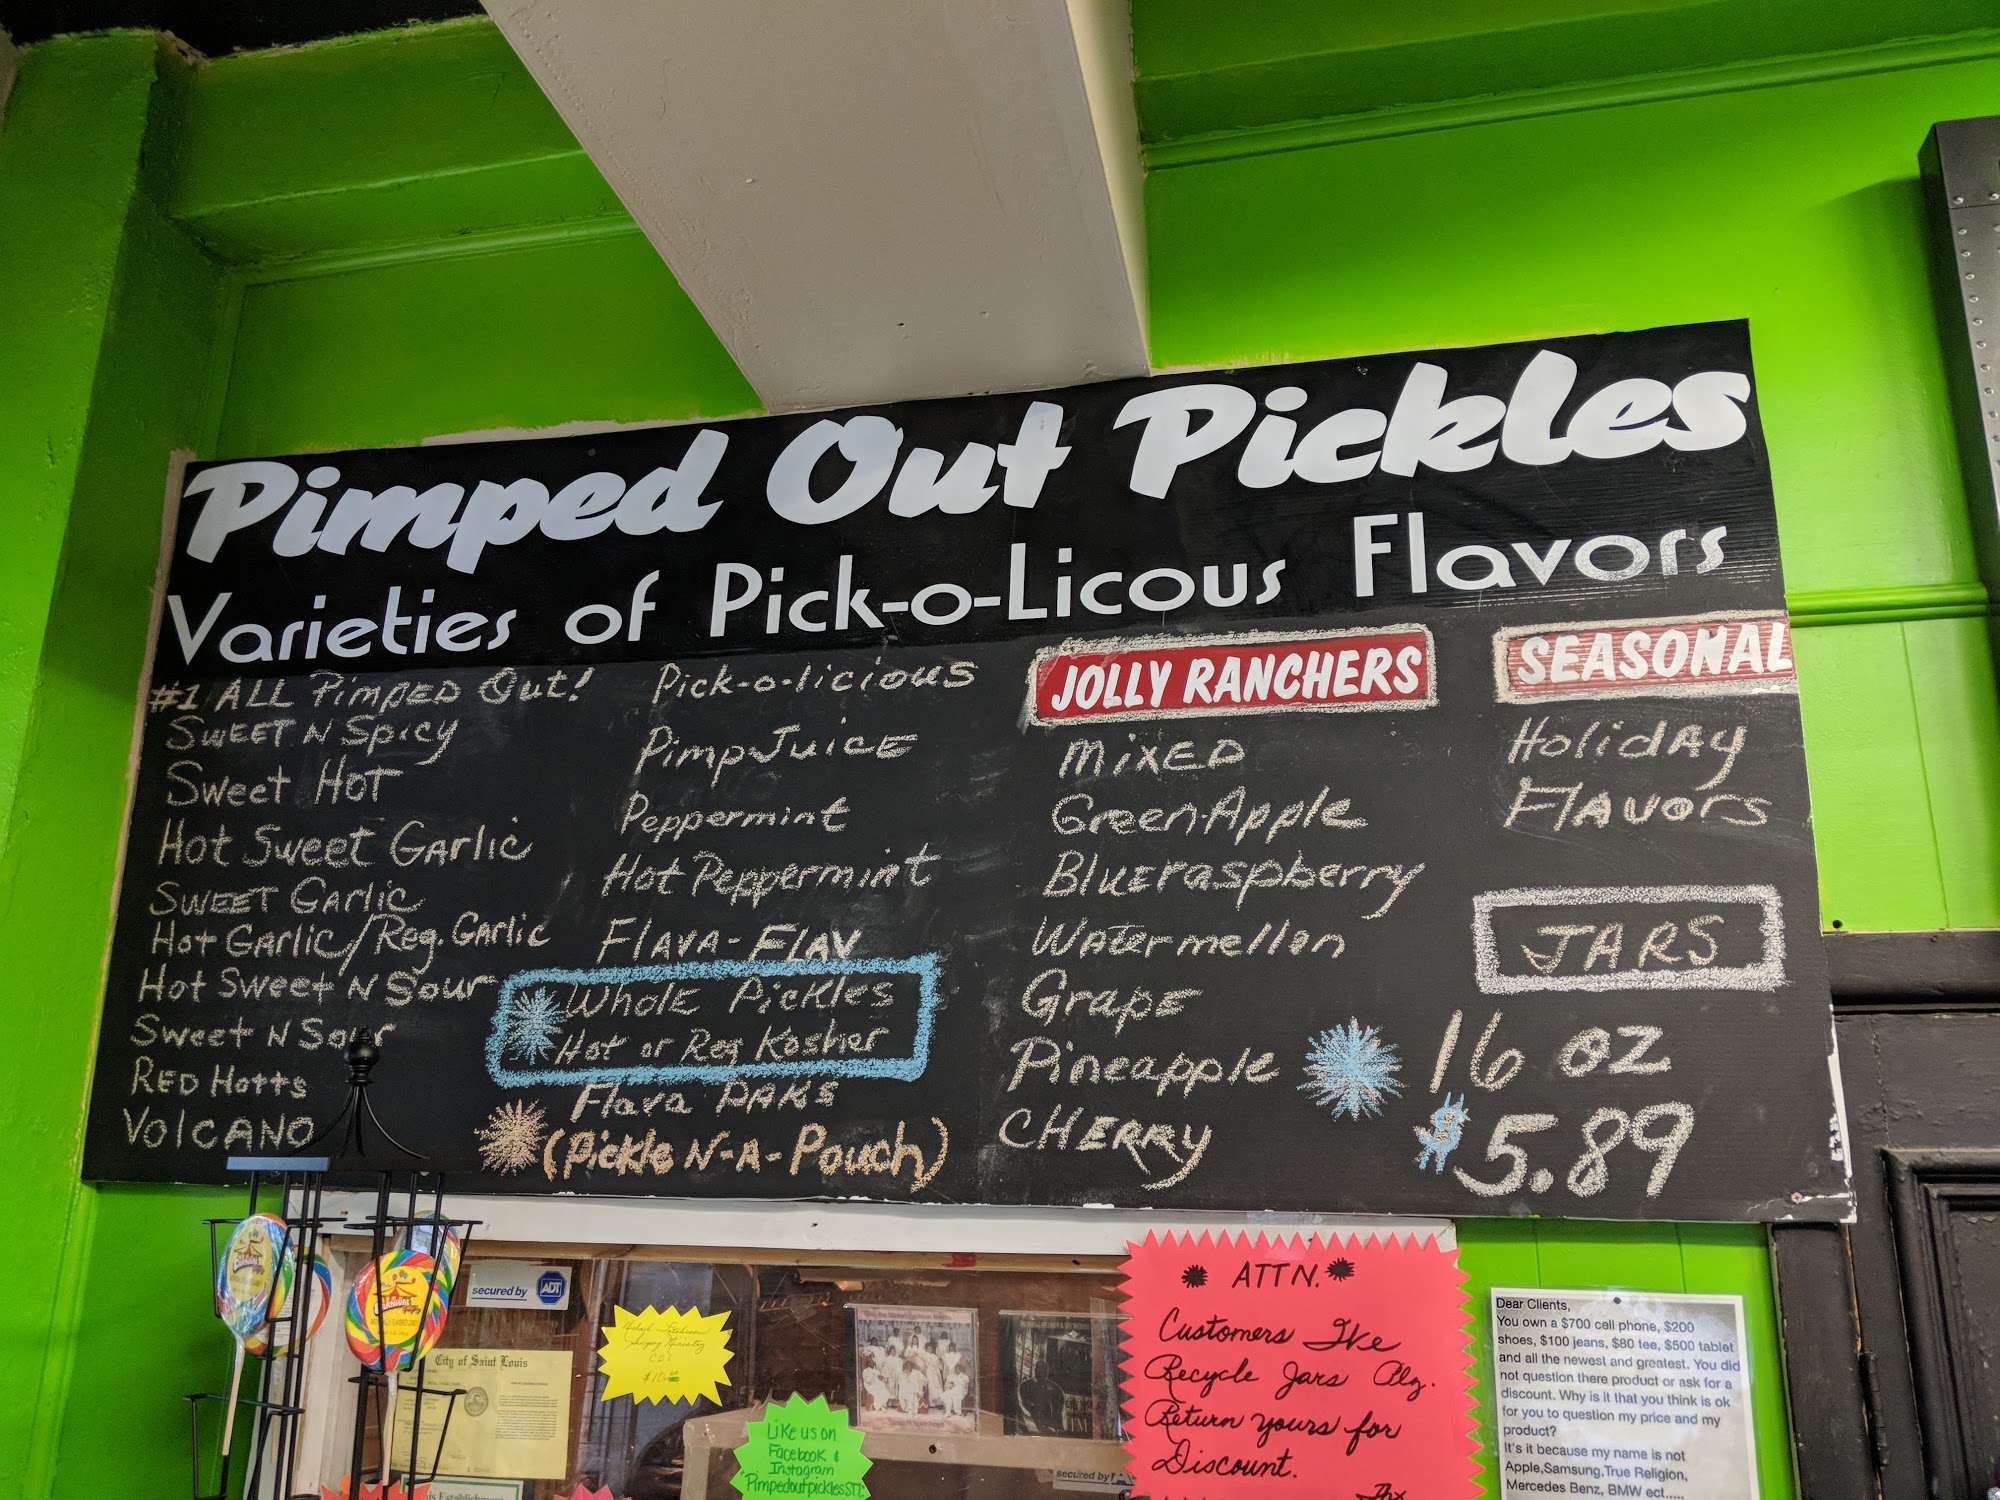 Pimped Out Pickles
Varieties of Pick-o-Licous Flavors
#1 ALL Pimped Out!
Sweet N Spicy
Sweet Hot
Hot Sweet Garlic
Sweet Garlic
Hot Garlic/Reg. Garlic
Hot Sweet N Sour
Sweet N Sour
Red Hotts
Volcano
Pick-o-licious
Pimp Juice
Peppermint
Hot Peppermint
Flava-Flav
Whole Pickles
Hot or Reg Kosher
Flava Paks
(Pickle N-A-Pouch)
JOLLY RANCHERS
Mixed
Green Apple
Blueraspberry
Watermellon
Grape
Pineapple
Cherry
SEASONAL
Holiday
Flavors
JARS
16 oz
$5.89
secured by ADT
City of Saint Louis
CDs
$10
Like us on
Facebook &
Instagram
"PimpedoutpicklesSTL"
secured by
ATTN.
Customers We
Recycle Jars Alz.
Return yours for
Discount.
Thx
Dear Clients,
You own a $700 cell phone, $200
shoes, $100 jeans, $80 tee, $500 tablet
and all the newest and greatest. You did
not question there product or ask for a
discount. Why is it that you think is ok
for you to question my price and my
product?
It's it because my name is not
Apple,Samsung,True Religion,
Mercedes Benz, BMW ect.....